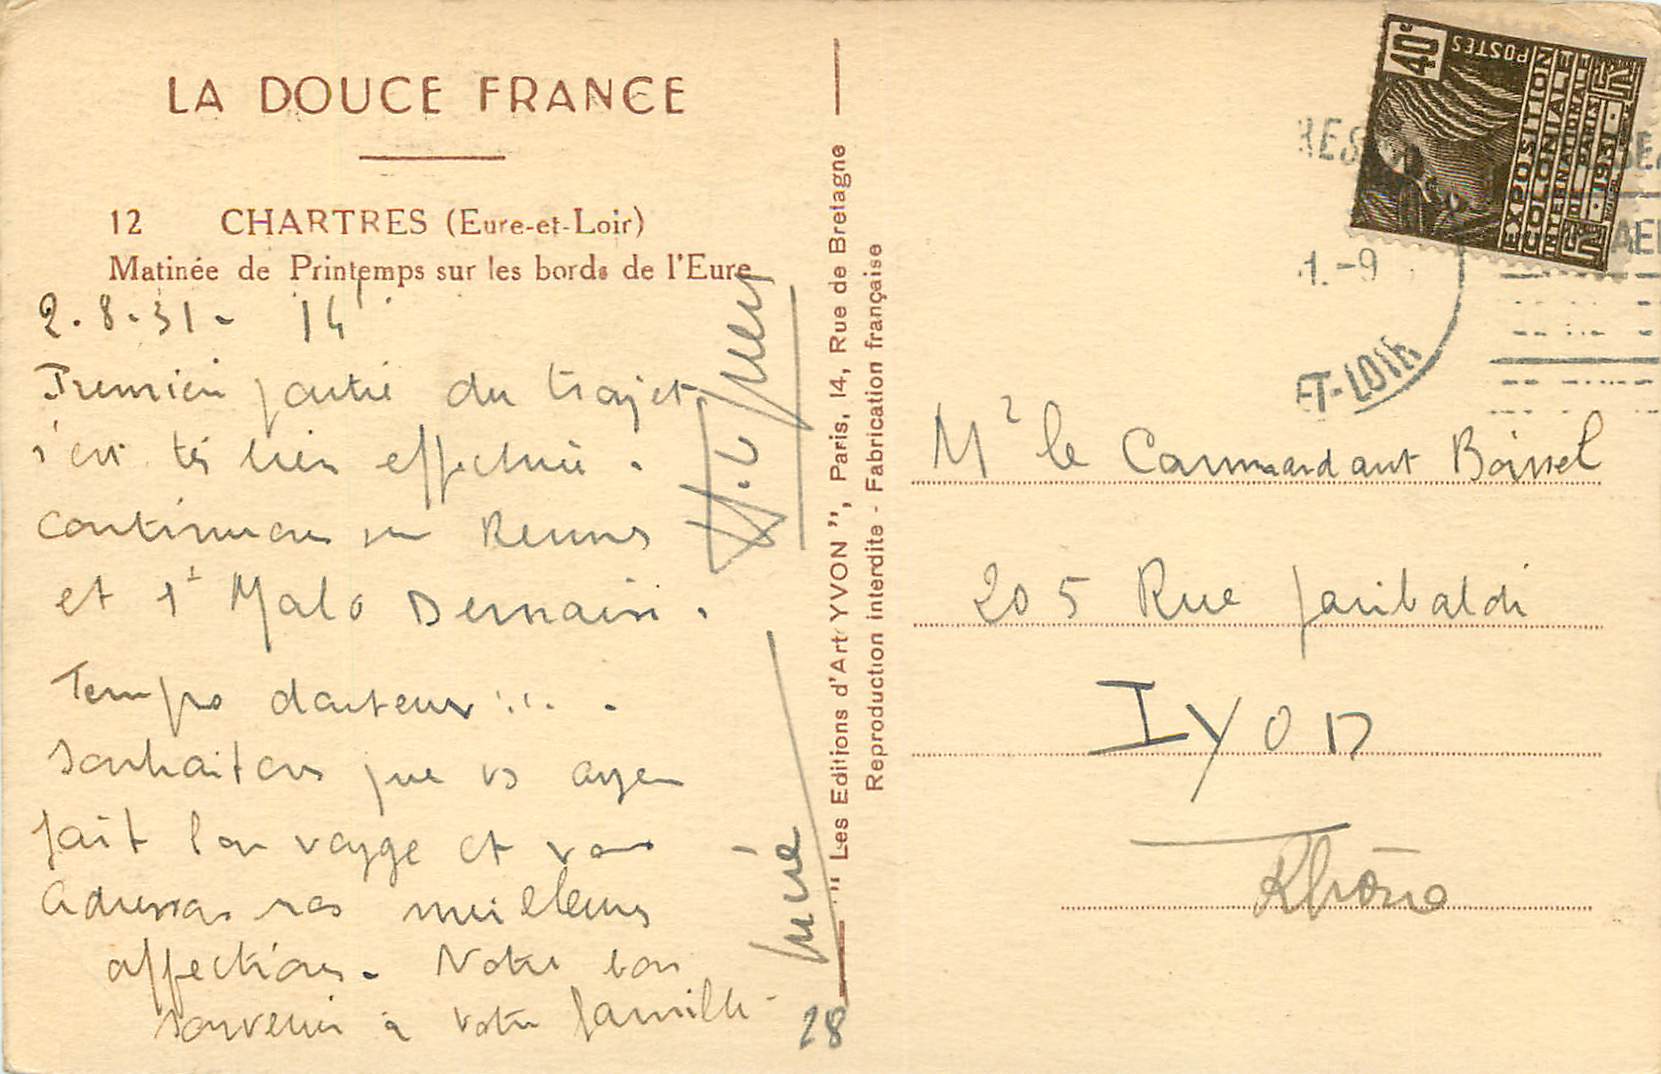 LA DOUCE FRANCE
12 CHARTRES (Eure-et-Loir)
Matinée de Printemps sur les bords de l'Eure
2.8.31 - 14
Premiere partie du trajet
s'est très bien effectuée.
Continuons sur Rennes
et St Malo Demain.
Temps douteux
Souhaitons que vs ayez
fait bon voyage et vous
adressons nos meilleures
affections. Notre bon
souvenir à votre famille -
28
" Les Editions d'Art YVON ", Paris, 14, Rue de Bretagne
Reproduction interdite - Fabrication française
40c
POSTES
EXPOSITION
COLONIALE
INTERNATIONALE
DE PARIS
1931
RES
1.-9
ET-LOIR
Mr le Commandant Boissel
205 Rue Garibaldi
LYON
Rhône